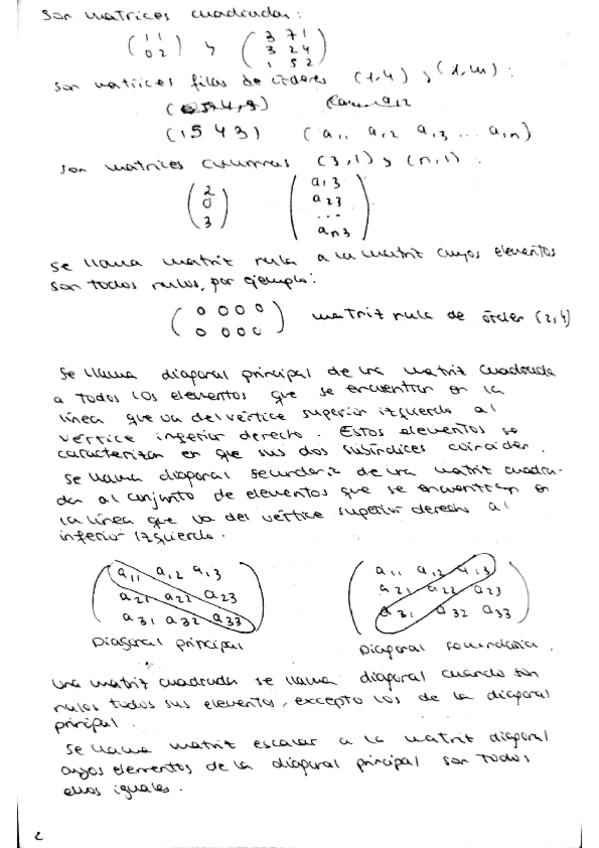 Son matrices cuadradas:
( 1 1 ) y ( 3 7 1 )
( 0 2 ) ( 3 2 4 )
( 1 5 2 )
Son matrices filas de órdenes (1,4) y (1,m):
(1 5 4 3) (a11 a12 a13 ... a1n)
Son matrices columnas (3,1) y (n,1):
( 2 ) ( a13 )
( 0 ) ( a23 )
( 3 ) ( ... )
( an3 )
Se llama matriz nula a la matriz cuyos elementos
son todos nulos, por ejemplo:
( 0 0 0 0 ) matriz nula de órden (2,4)
( 0 0 0 0 )
Se llama diagonal principal de una matriz cuadrada
a todos los elementos que se encuentran en la
línea que va del vértice superior izquierdo al
vértice inferior derecho. Estos elementos se
caracterizan en que sus dos subíndices coinciden.
Se llama diagonal secundaria de una matriz cuadra-
da al conjunto de elementos que se encuentran en
la línea que va del vértice superior derecho al
inferior izquierdo.
( a11 a12 a13 ) ( a11 a12 a13 )
( a21 a22 a23 ) ( a21 a22 a23 )
( a31 a32 a33 ) ( a31 a32 a33 )
Diagonal principal Diagonal secundaria.
Una matriz cuadrada se llama diagonal cuando son
nulos todos sus elementos, excepto los de la diagonal
principal.
Se llama matriz escalar a la matriz diagonal
cuyos elementos de la diagonal principal son todos
ellos iguales.
2